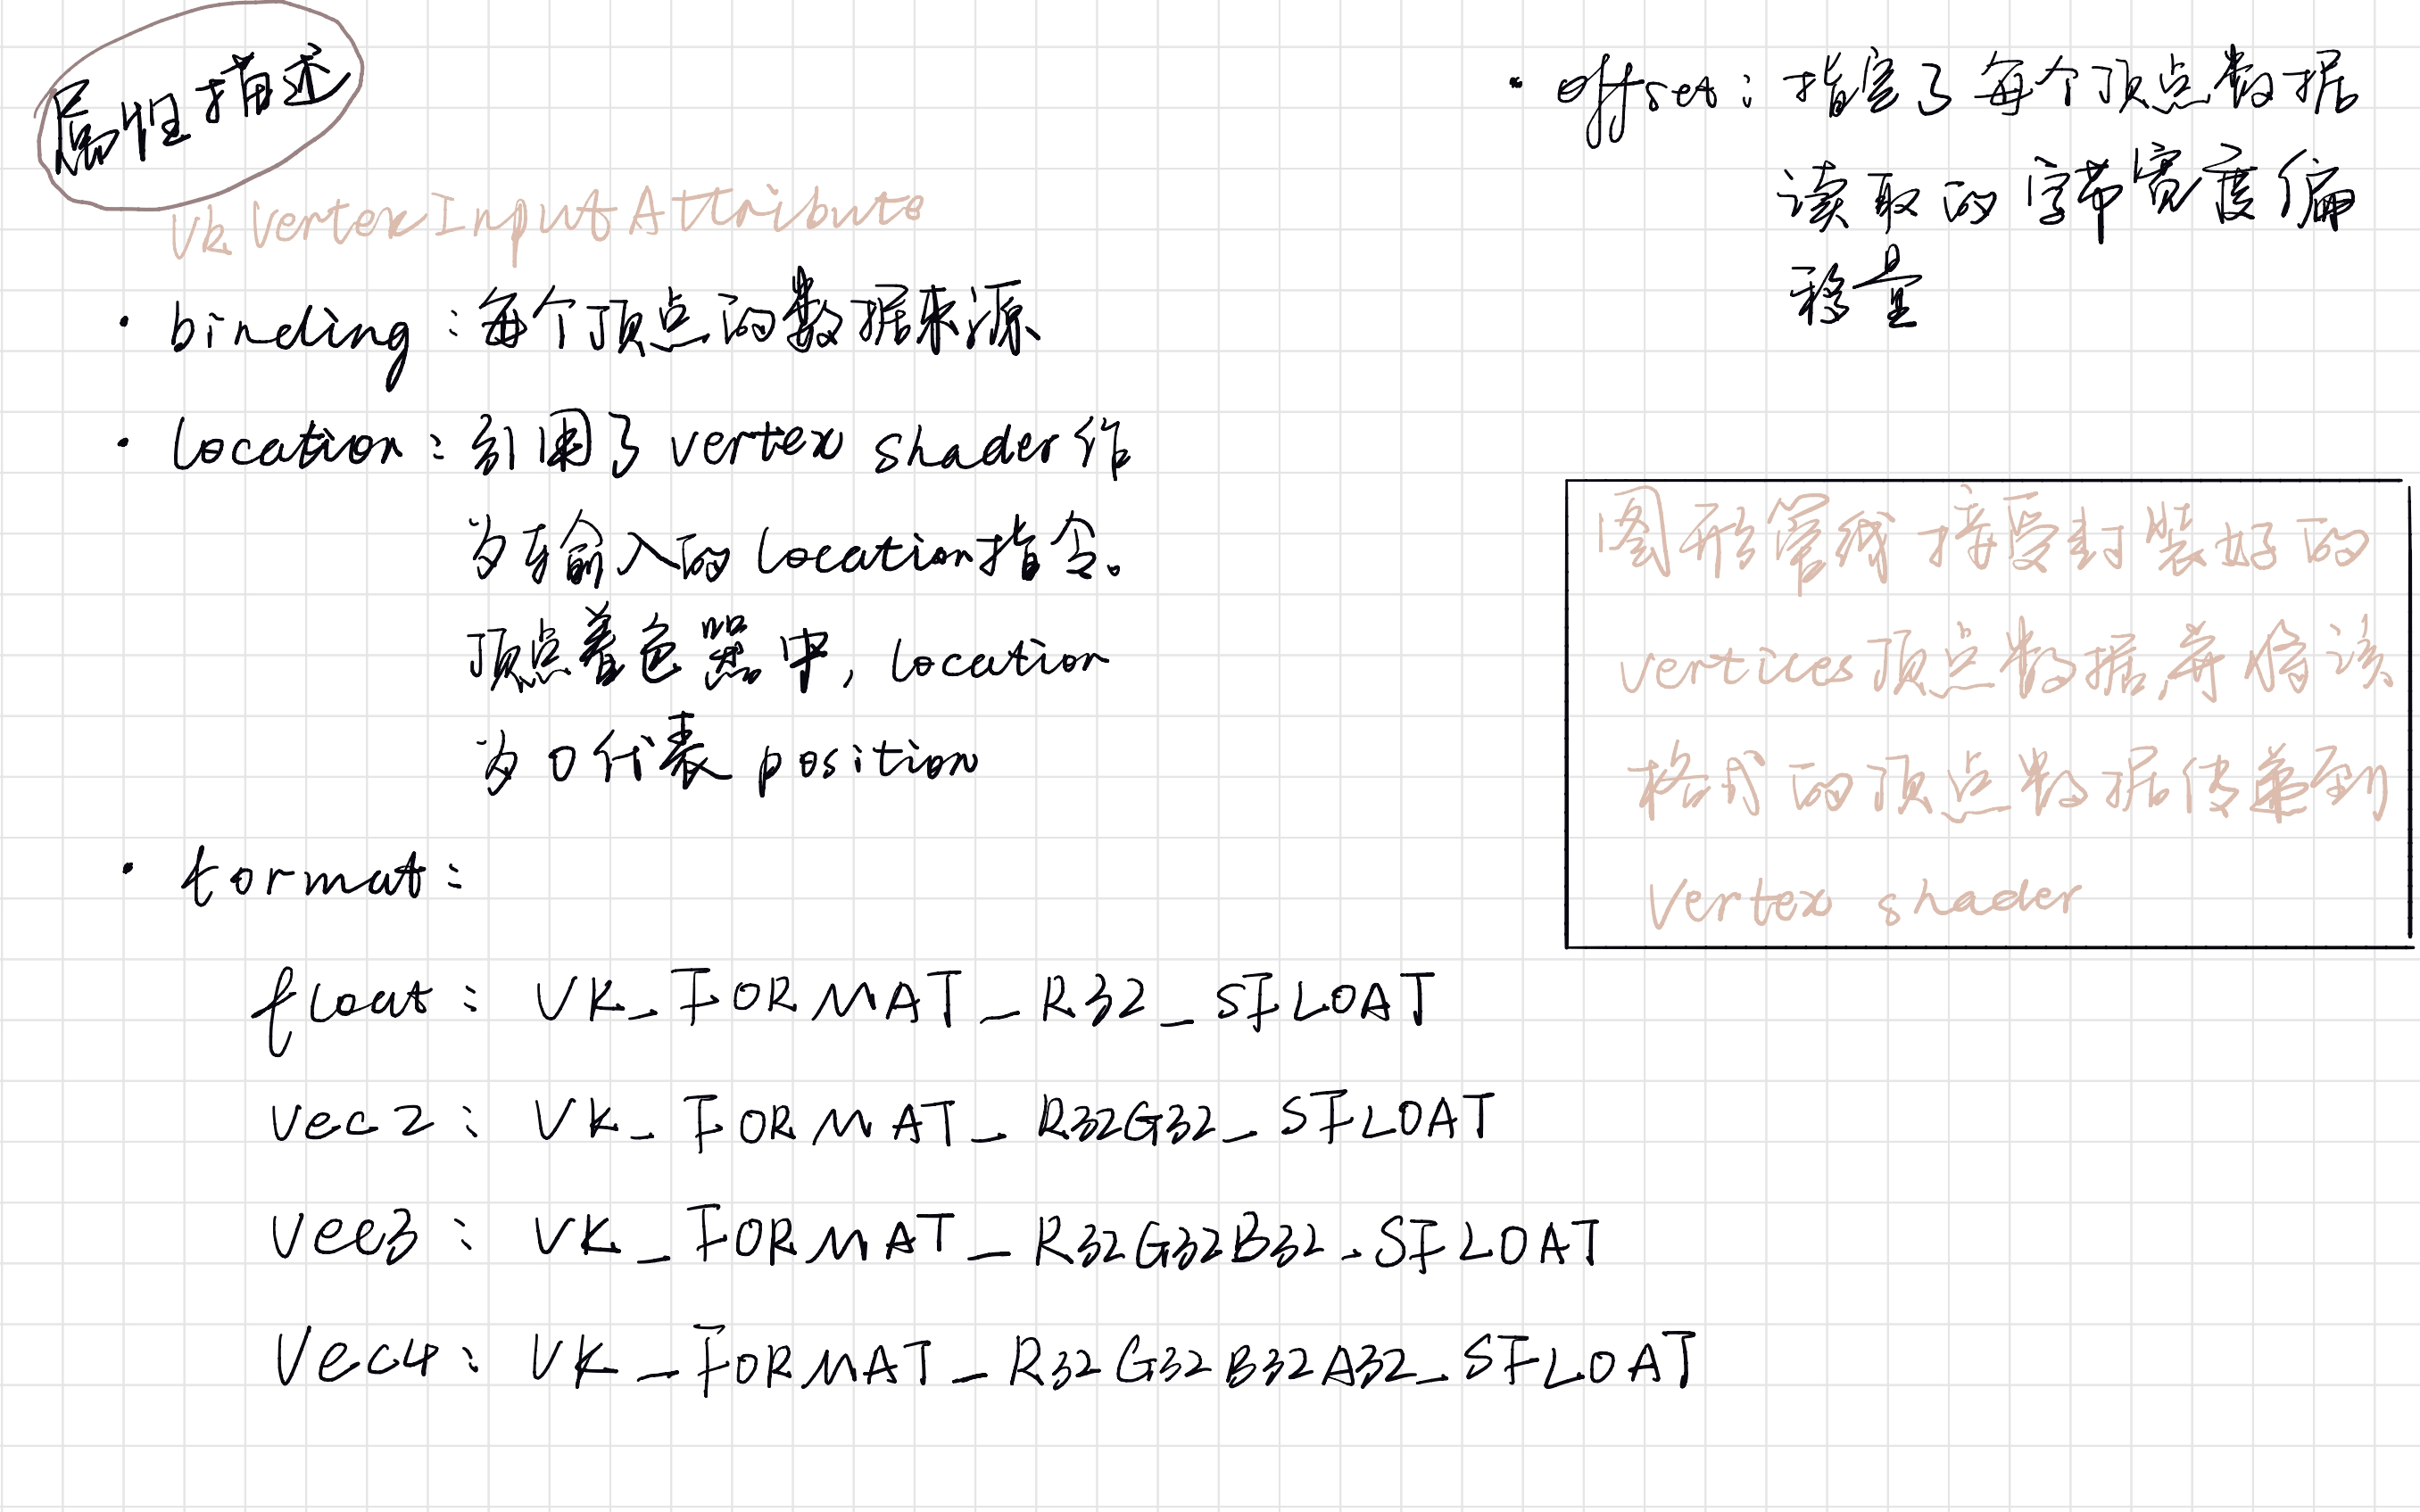 属性描述
VkVertexInputAttribute
· binding：每个顶点的数据来源
· location：引用了 vertex shader 作
为车输入的 location 指令。
顶点着色器中，location
为 0 代表 position
· format：
float：VK_FORMAT_R32_SFLOAT
vec2：VK_FORMAT_R32G32_SFLOAT
vec3：VK_FORMAT_R32G32B32_SFLOAT
Vec4：VK_FORMAT_R32G32B32A32_SFLOAT
· offset：指定了每个顶点数据
读取的字节宽度偏
移量
图形管线接受封装好的
vertices顶点数据并将该
格式的顶点数据传递到
vertex shader